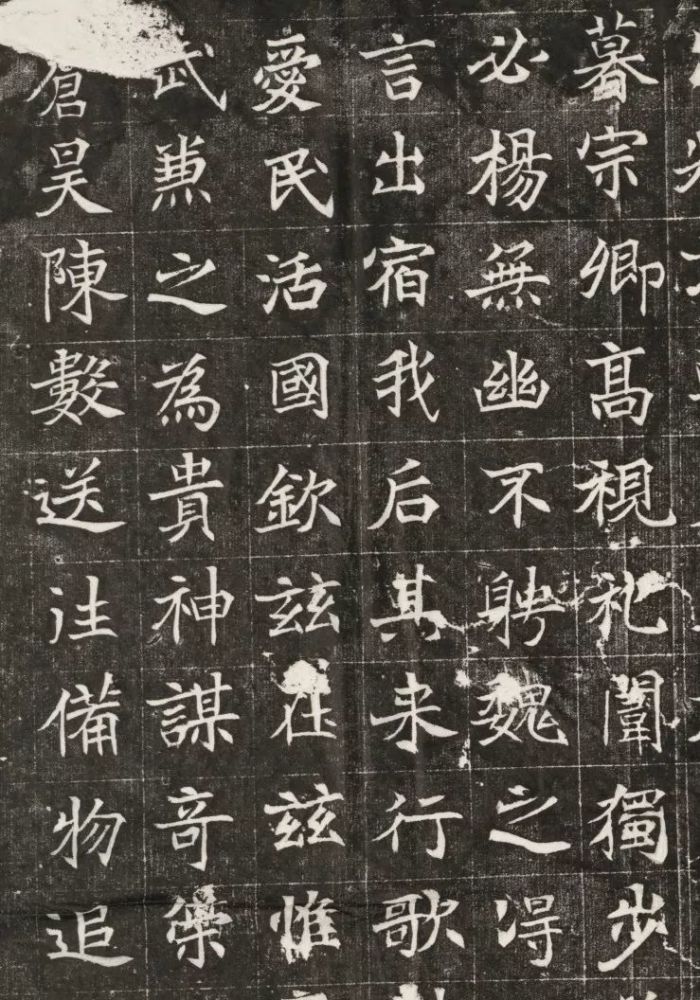 暮宗卿髙視礼闈獨步
必楊無幽不聘魏之淂
言出宿我后其来行歌
愛民活國欽兹在兹惟
武兼之為貴神謀奇
倉昊陳數送往備物追